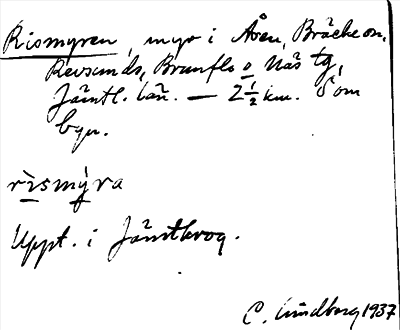 Rismyren, myr i Åsen, Bräcke sn,
Revsunds, Brunflo o. Näs tg,
Jämtl. län. — 2 1/2 km. S om
byn.
rìsmỳra
Uppt. i Jämtkrog.
C. Lindberg 1937